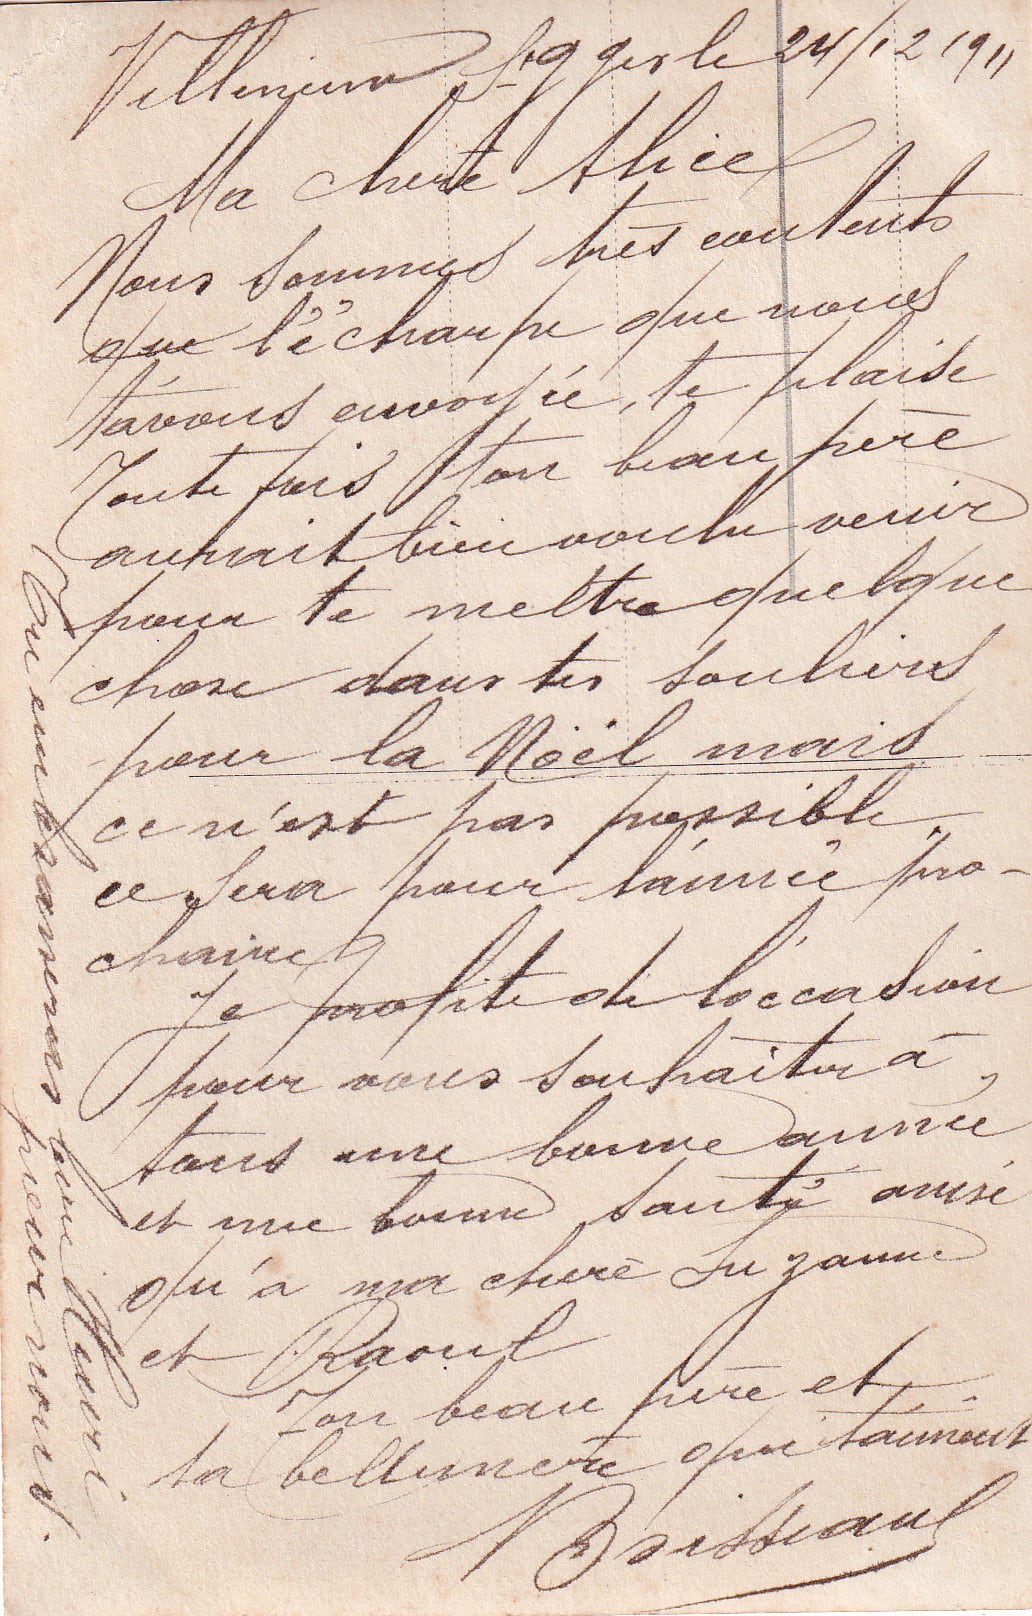 St ggesle 24/12 1911
Ma chère Alice
Nous sommes très contents
que l'êcharpe que nous
t'avons envoyée, te plaise
Toute fois ton beau père
aurait bien voulu venir
pour te mettre quelque
chose dans tes souliers
pour la Nöèl mais
ce n'est pas possible
ce sera pour l'année pro-
chaine
Je profite de l'occasion
pour vous souhaiter à
tous une bonne année
et une bonne santé ainsi
qu'à ma chère Suzanne
et Raoul
Ton beau père et
ta bellemère qui t'aiment
N Brisseau
Tu embrasseras bien Henri
pour nous.